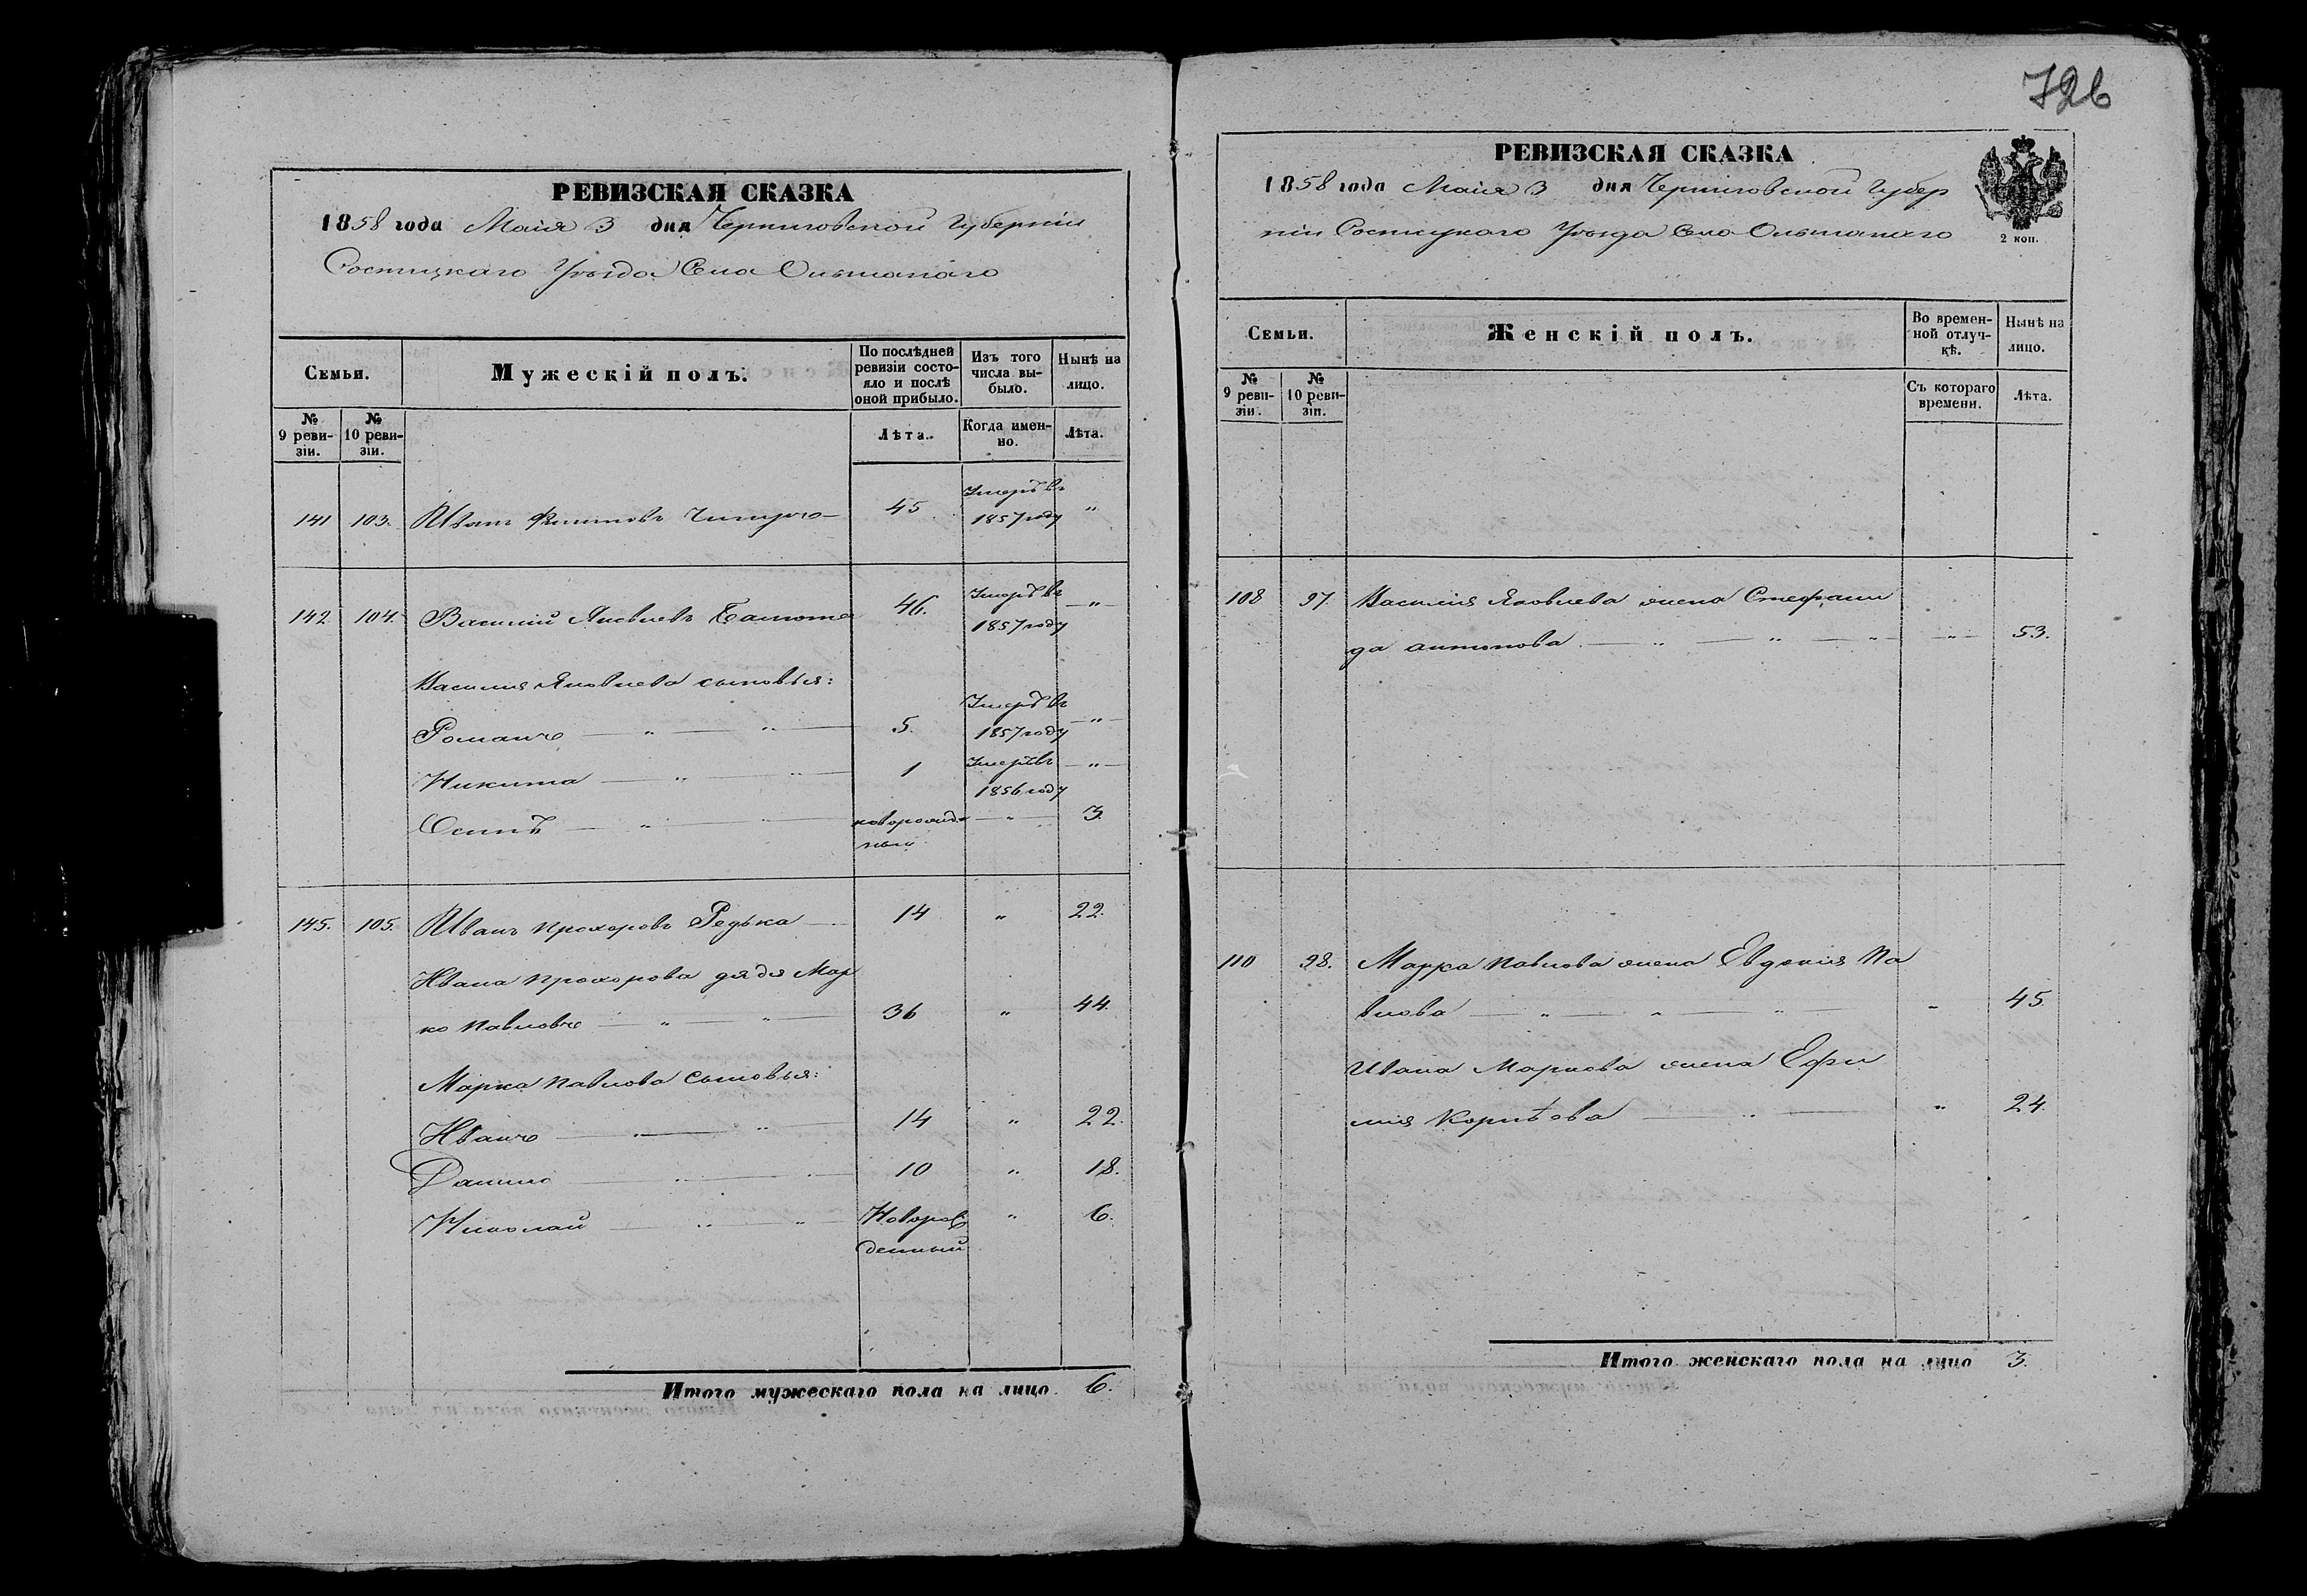 726
РЕВИЗСКАЯ СКАЗКА
1858 года Маія 3 дня Черниговской Губерніи
Сосницкаго Уѣзда Села Ольшанаго
Семьи.
Мужескій полъ.
По послѣдней ревизіи состояло и послѣ оной прибыло.
Изъ того числа выбыло.
Нынѣ на лицо.
№ 9 ревизіи.
№ 10 ревизіи.
Лѣта.
Когда именно.
Лѣта.
141 103. Иванъ 45 Умеръ въ 1857 году "
142 104. Василій Яковлевъ 46. Умеръ въ 1857 году "
Василія Яковлева сыновья:
Романъ " " 5. Умеръ въ 1857 году "
Никита " " 1 Умеръ въ 1856 году "
Осипъ " " новорожденный " 3.
145. 105. Иванъ Прохоровъ Редька 14 " 22.
Ивана Прохорова дядя Мар
ко Павловъ " " 36 " 44.
Марка Павлова сыновья:
Иванъ " " 14 " 22.
Данило " " 10 " 18.
Николай " " Новорож
денный " 6.
Итого мужескаго пола на лицо 6.
РЕВИЗСКАЯ СКАЗКА
1858 года Маія 3 дня Черниговской Губер
ніи Сосницкаго Уѣзда Села Ольшанаго
2 коп.
Семьи.
Женскій полъ.
Во временной отлучкѣ.
Нынѣ на лицо.
№ 9 ревизіи.
№ 10 ревизіи.
Съ котораго времени.
Лѣта.
108 97. Василія Яковлева жена Стефани
да Антонова " " " " 53.
110 98. Марка Павлова жена Евдокія Па
влова " " " " 45.
Ивана Маркова жена Ефи
мія Корнѣева " " 24.
Итого женскаго пола на лицо 3.